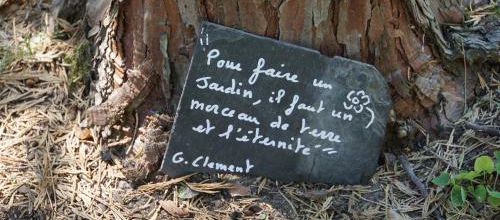 "Pour faire un
Jardin, il faut un
morceau de terre
et l'éternité"
G. Clement